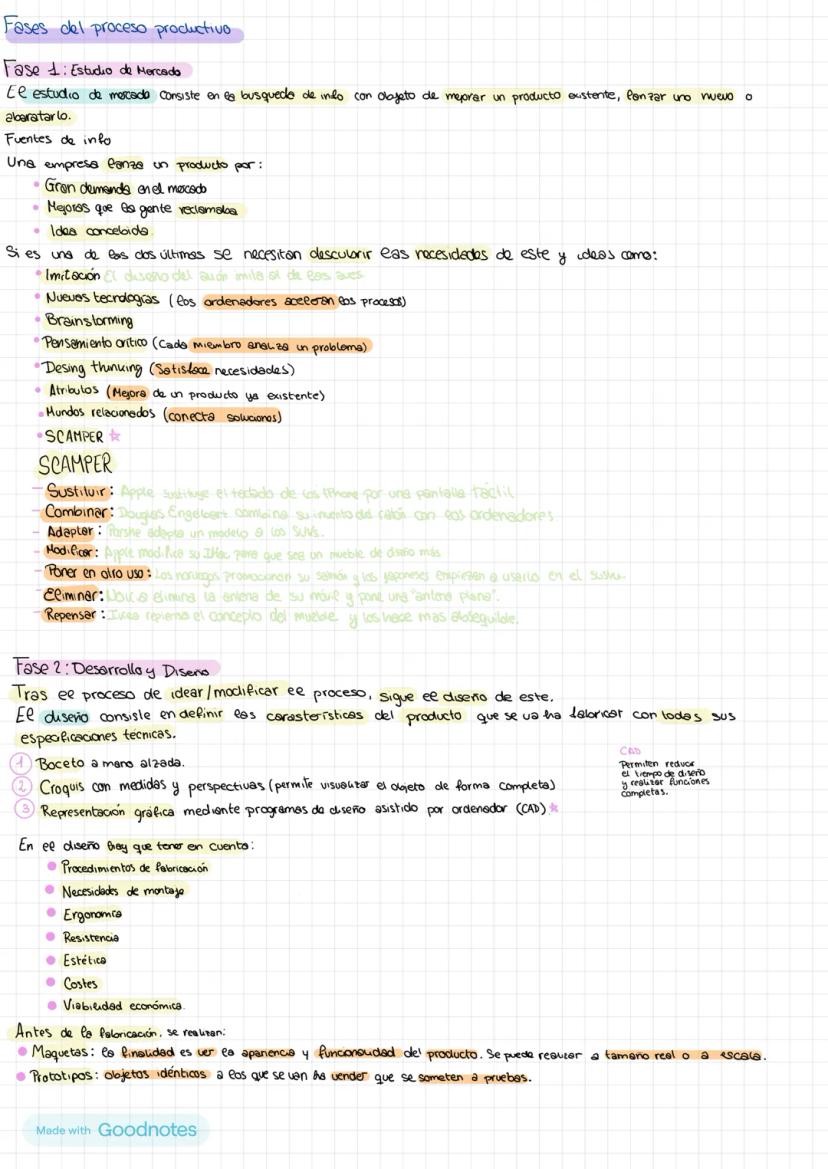 Fases del proceso productivo
Fase 1: Estudio de Mercado
El estudio de mercado consiste en la busqueda de info con objeto de mejorar un producto existente, lanzar uno nuevo o
abaratarlo.
Fuentes de info
Una empresa lanza un producto por:
• Gran demanda en el mercado
• Mejoras que la gente reclamaba
• Idea concebida.
Si es una de las dos últimas se necesitan descubrir las necesidades de este y ideas como:
• Imitación El diseño del avión imita al de las aves
• Nuevas tecnologías (los ordenadores aceleran los procesos)
• Brainstorming
• Pensamiento crítico (Cada miembro analiza un problema)
• Desing thinking (Satisface necesidades)
• Atributos (Mejora de un producto ya existente)
• Mundos relacionados (conecta soluciones)
• SCAMPER ☆
SCAMPER
- Sustituir: Apple sustituye el teclado de los iPhone por una pantalla táctil.
- Combinar: Douglas Engelbert combina su invento del ratón con los ordenadores.
- Adaptar: Porshe adapta un modelo a los SUVs.
- Modificar: Apple modifica su IMac para que sea un mueble de diseño más
- Poner en otro uso: Los noruegos promocionan su salmón y los japoneses empiezan a usarlo en el sushi.
- Eliminar: Nokia elimina la antena de su móvil y pone una "antena plana".
- Repensar: Ikea repiensa el concepto del mueble y los hace mas
Fase 2: Desarrollo y Diseño
Tras el proceso de idear/modificar el proceso, sigue el diseño de este.
El diseño consiste en definir las características del producto que se va ha fabricar con todas sus
especificaciones técnicas.
① Boceto a mano alzada.
② Croquis con medidas y perspectivas (permite visualizar el objeto de forma completa)
③ Representación gráfica mediante programas de diseño asistido por ordenador (CAD) ★
CAD
Permiten reducir
el tiempo de diseño
y realizar funciones
completas.
En el diseño hay que tener en cuenta:
• Procedimientos de fabricación
• Necesidades de montaje
• Ergonomía
• Resistencia
• Estética
• Costes
• Viabilidad económica.
Antes de la fabricación, se realizan:
• Maquetas: la finalidad es ver la apariencia y funcionalidad del producto. Se puede realizar a tamaño real o a escala.
• Prototipos: objetos idénticos a los que se van ha vender que se someten a pruebas.
Made with Goodnotes